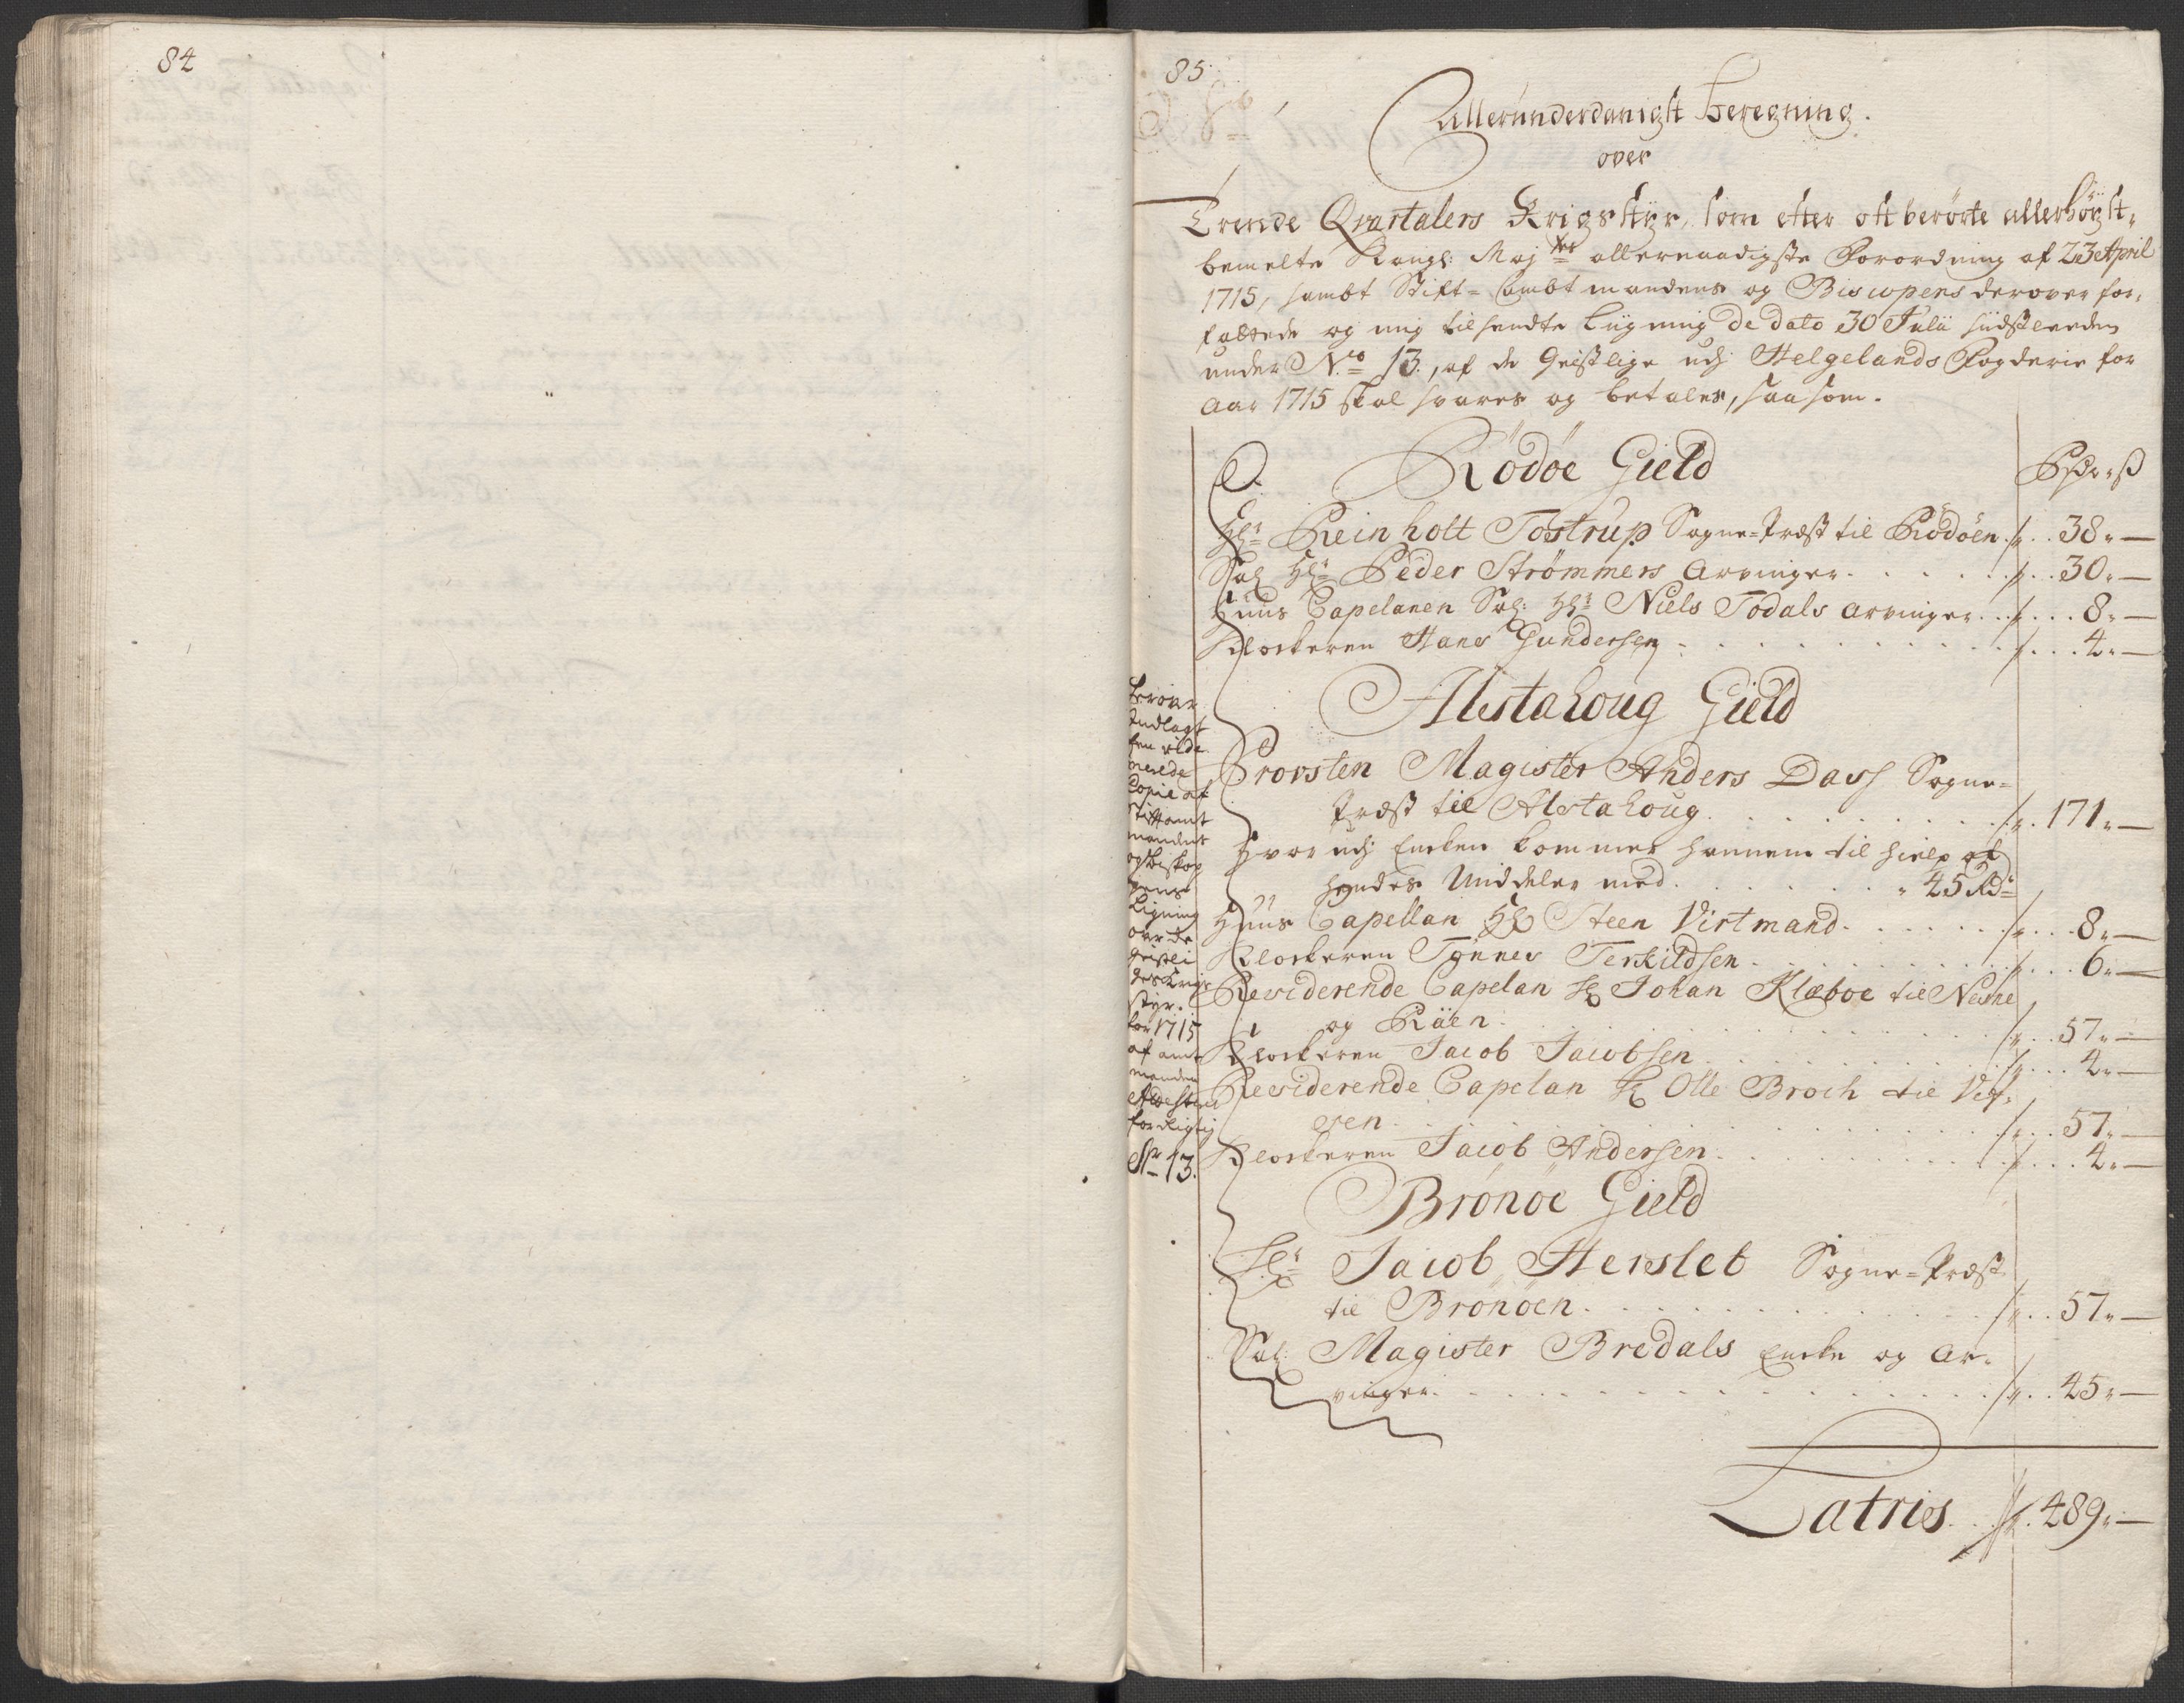 84
85.
Allerunderdanigst Beregning.
over
Trende Qvartalers Krigstyr, som efter oftberörte allerhöyst-
bemelte Kongl: Maj:ts allernaadigste Forordning af 23 April
1715, sambt Stift-Ambtmandens og Biscopens derover for-
fattede og mig tilsendte Liigning De dato 30 Julii sidstleeden
under N:o 13., af de Geistlige udj Helgelands Fogderie for
Aar 1715 skal svares og betales, saasom.
Rödöe Gield
Rdr ß
Hr Reinholt Tostrup Sogne-Præst til Rödöen 38 "—
Sal Hr Peder Strømmers Arvinger 30 "—
Huus Capelanen Sal: Hr Niels Todals Arvinger 8 "—
Klockeren Hans Gundersen 4 "—
Alstahoug Gield
Provsten Magister Anders Dass Sogne-
Præst til Alstahoug 171 "—
Hvor udj Encken kommer hannem til hielp af
hendes Middeler med 45 Rd:
Huus Capellan Hr Steen Virtmand 8 "—
Klockeren Tønnes Terkildsen 6 "—
Reciderende Capelan Hr Johan Klæboe til Nesne
og Raen 57 "—
Klockeren Jacob Jacobsen 4 "—
Reciderende Capelan Hr Olle Broch til Vef-
sen 57 "—
Klockeren Jacob Andersen 4 "—
Brönöe Gield
Hr Jacob Hersleb Sogne-Præst
til Brönöen 57 "—
Sal: Magister Bredals Encke og Ar-
vinger 45 "—
Latries 489 "—
herover
Indlagt
en vide-
merede
Copie af
Stiftamt
mandens
og Biskop
pens
Ligning
over de
Geistli
ges Krigs
styr.
for 1715
af amt
manden
for Rigtig
Nr 13.